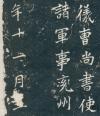 儀曹尚書使
諸軍事兗州
年十一月